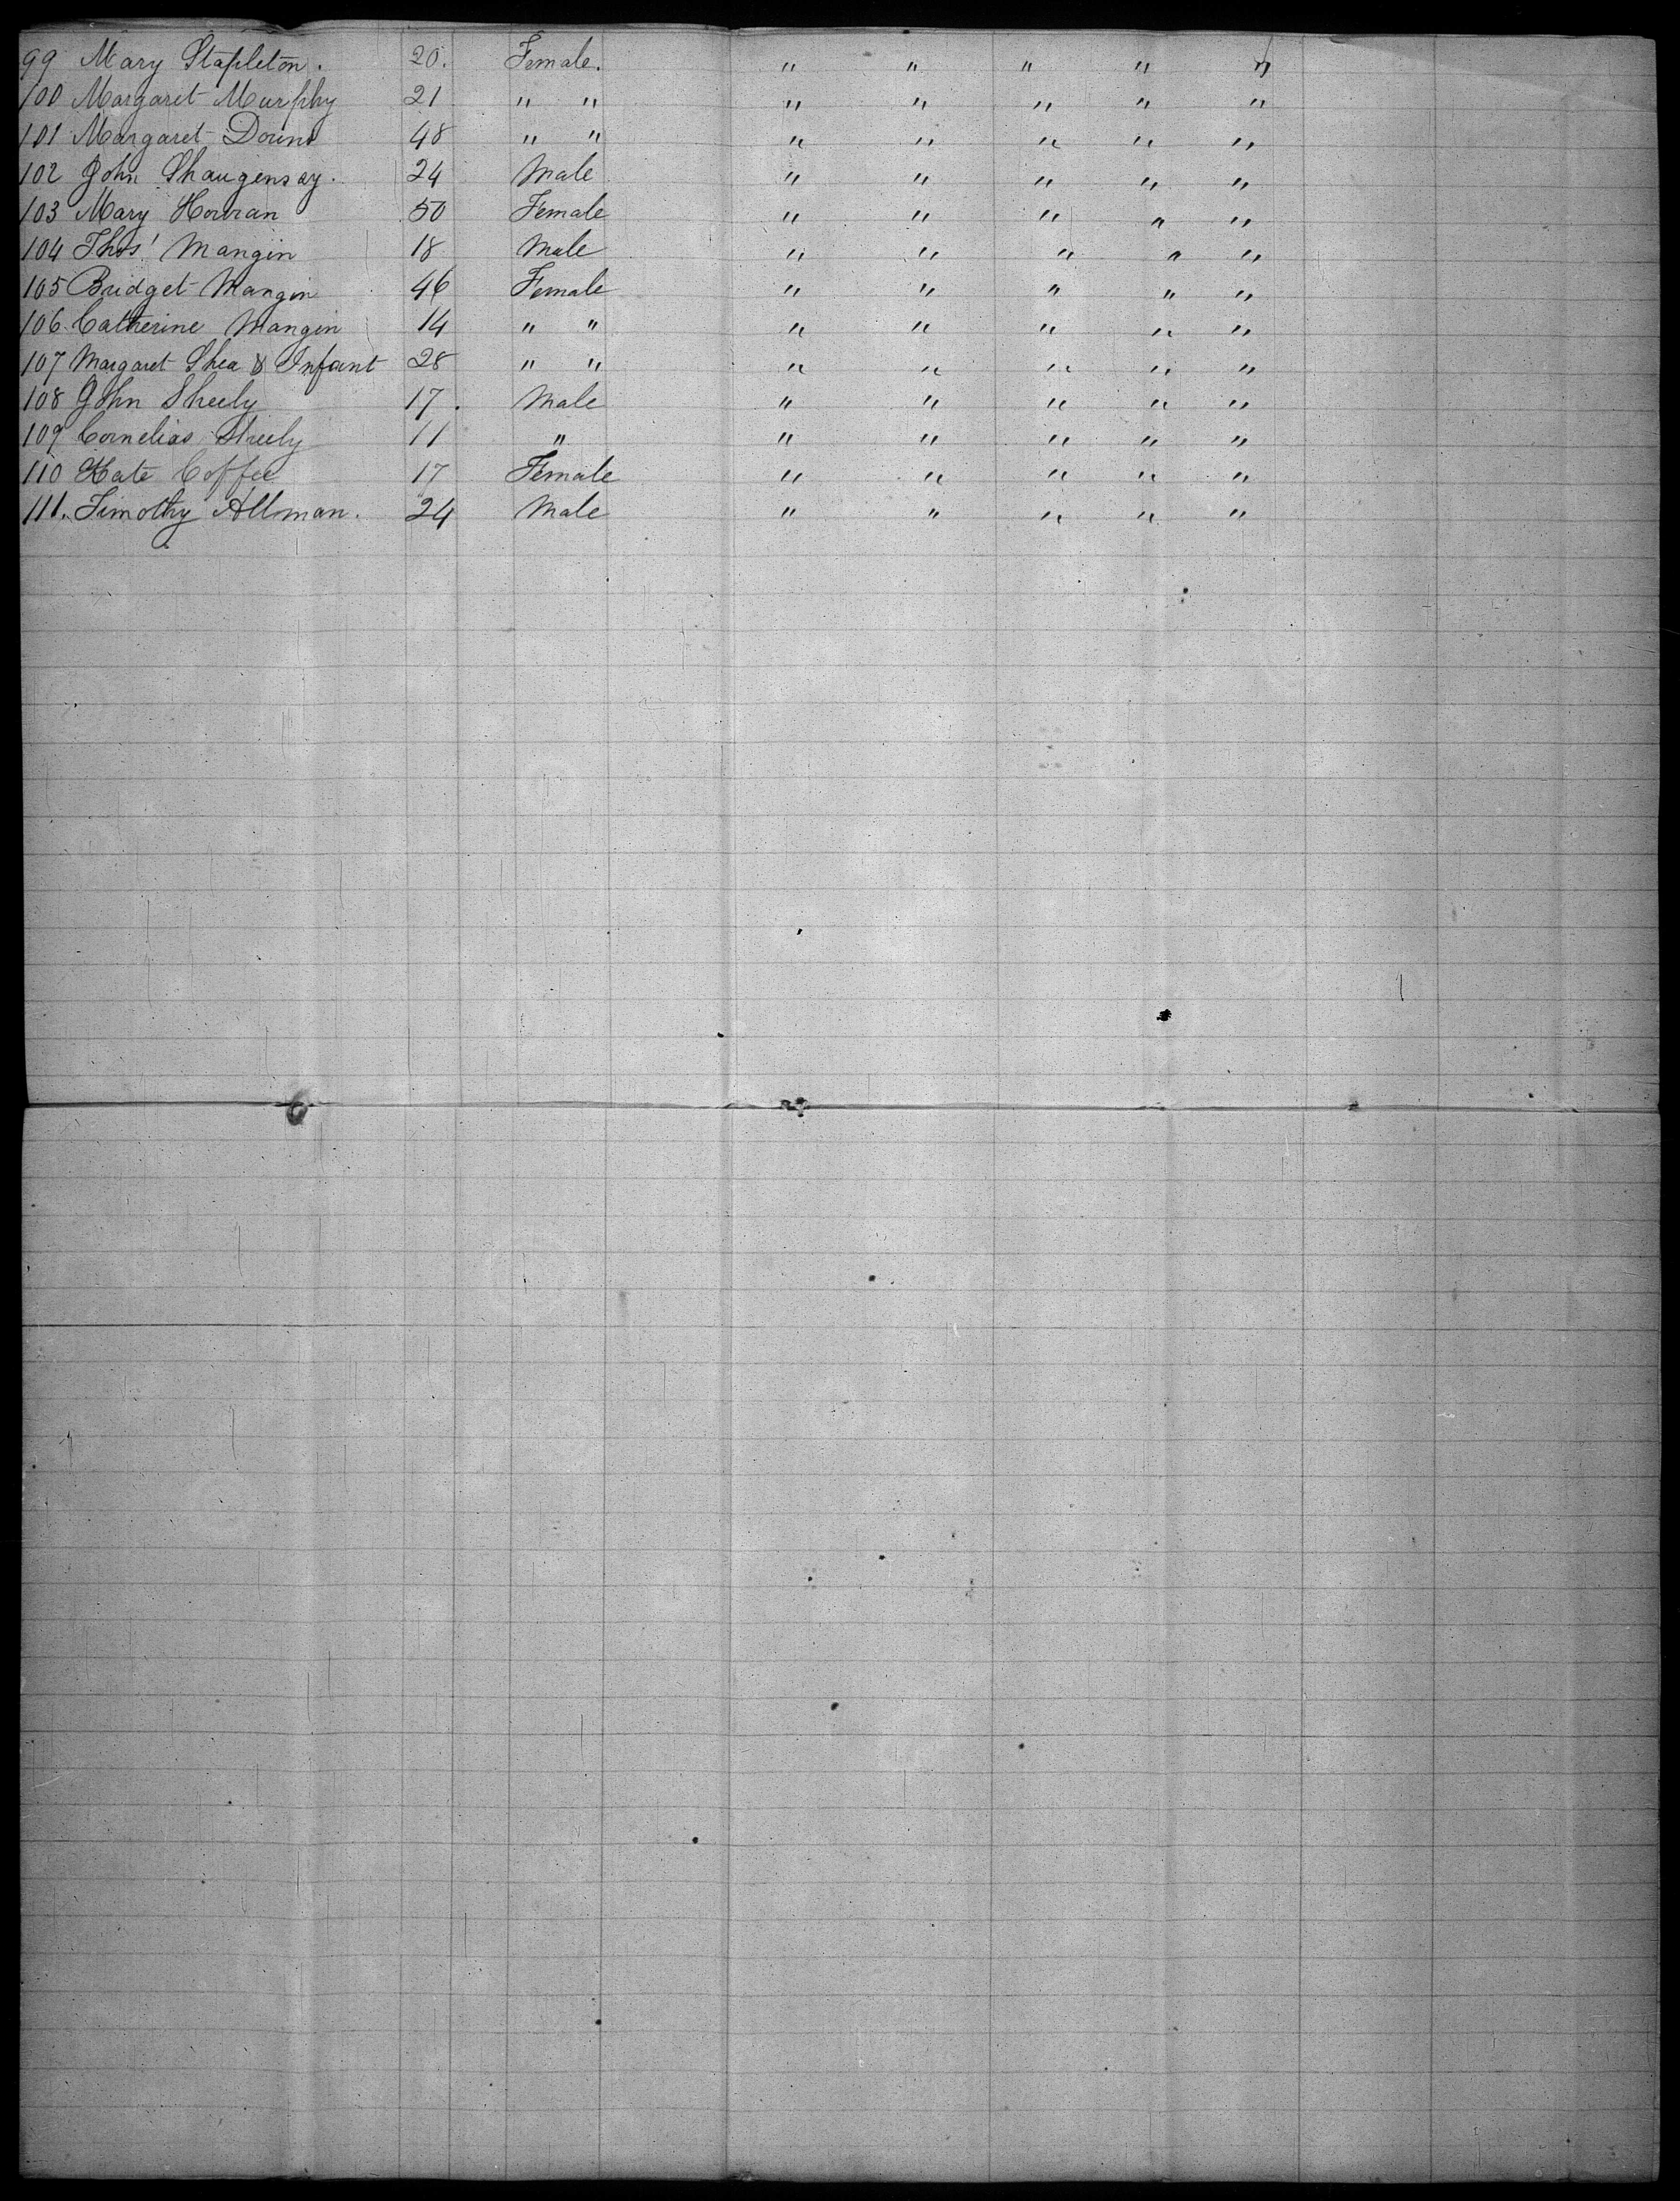 99 Mary Stapleton. 20. Female. " " " " "
100 Margaret Murphy 21 " " " " " " "
101 Margaret Downs 48 " " " " " " "
102 John Shaugensay. 24 Male " " " " "
103 Mary Howran 50 Female " " " " "
104 Thos! Mangin 18 Male " " " " "
105 Bridget Mangin 46 Female " " " " "
106. Catherine Mangin 14 " " " " " " "
107 Margaret Shea & Infant 28 " " " " " " "
108 John Sheely 17. Male " " " " "
109 Cornelias Sheely 11 " " " " " "
110 Kate Coffee 17 Female " " " " "
111. Timothy Allman. 24 Male " " " " "